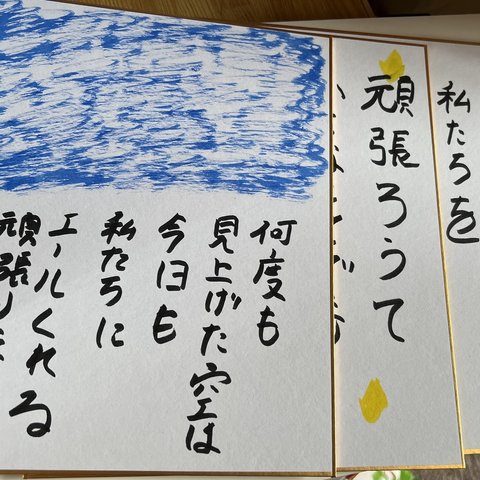 私たちを
頑張ろうて
何度も
見上げた空は
今日も
私たちに
エールくれる
頑張